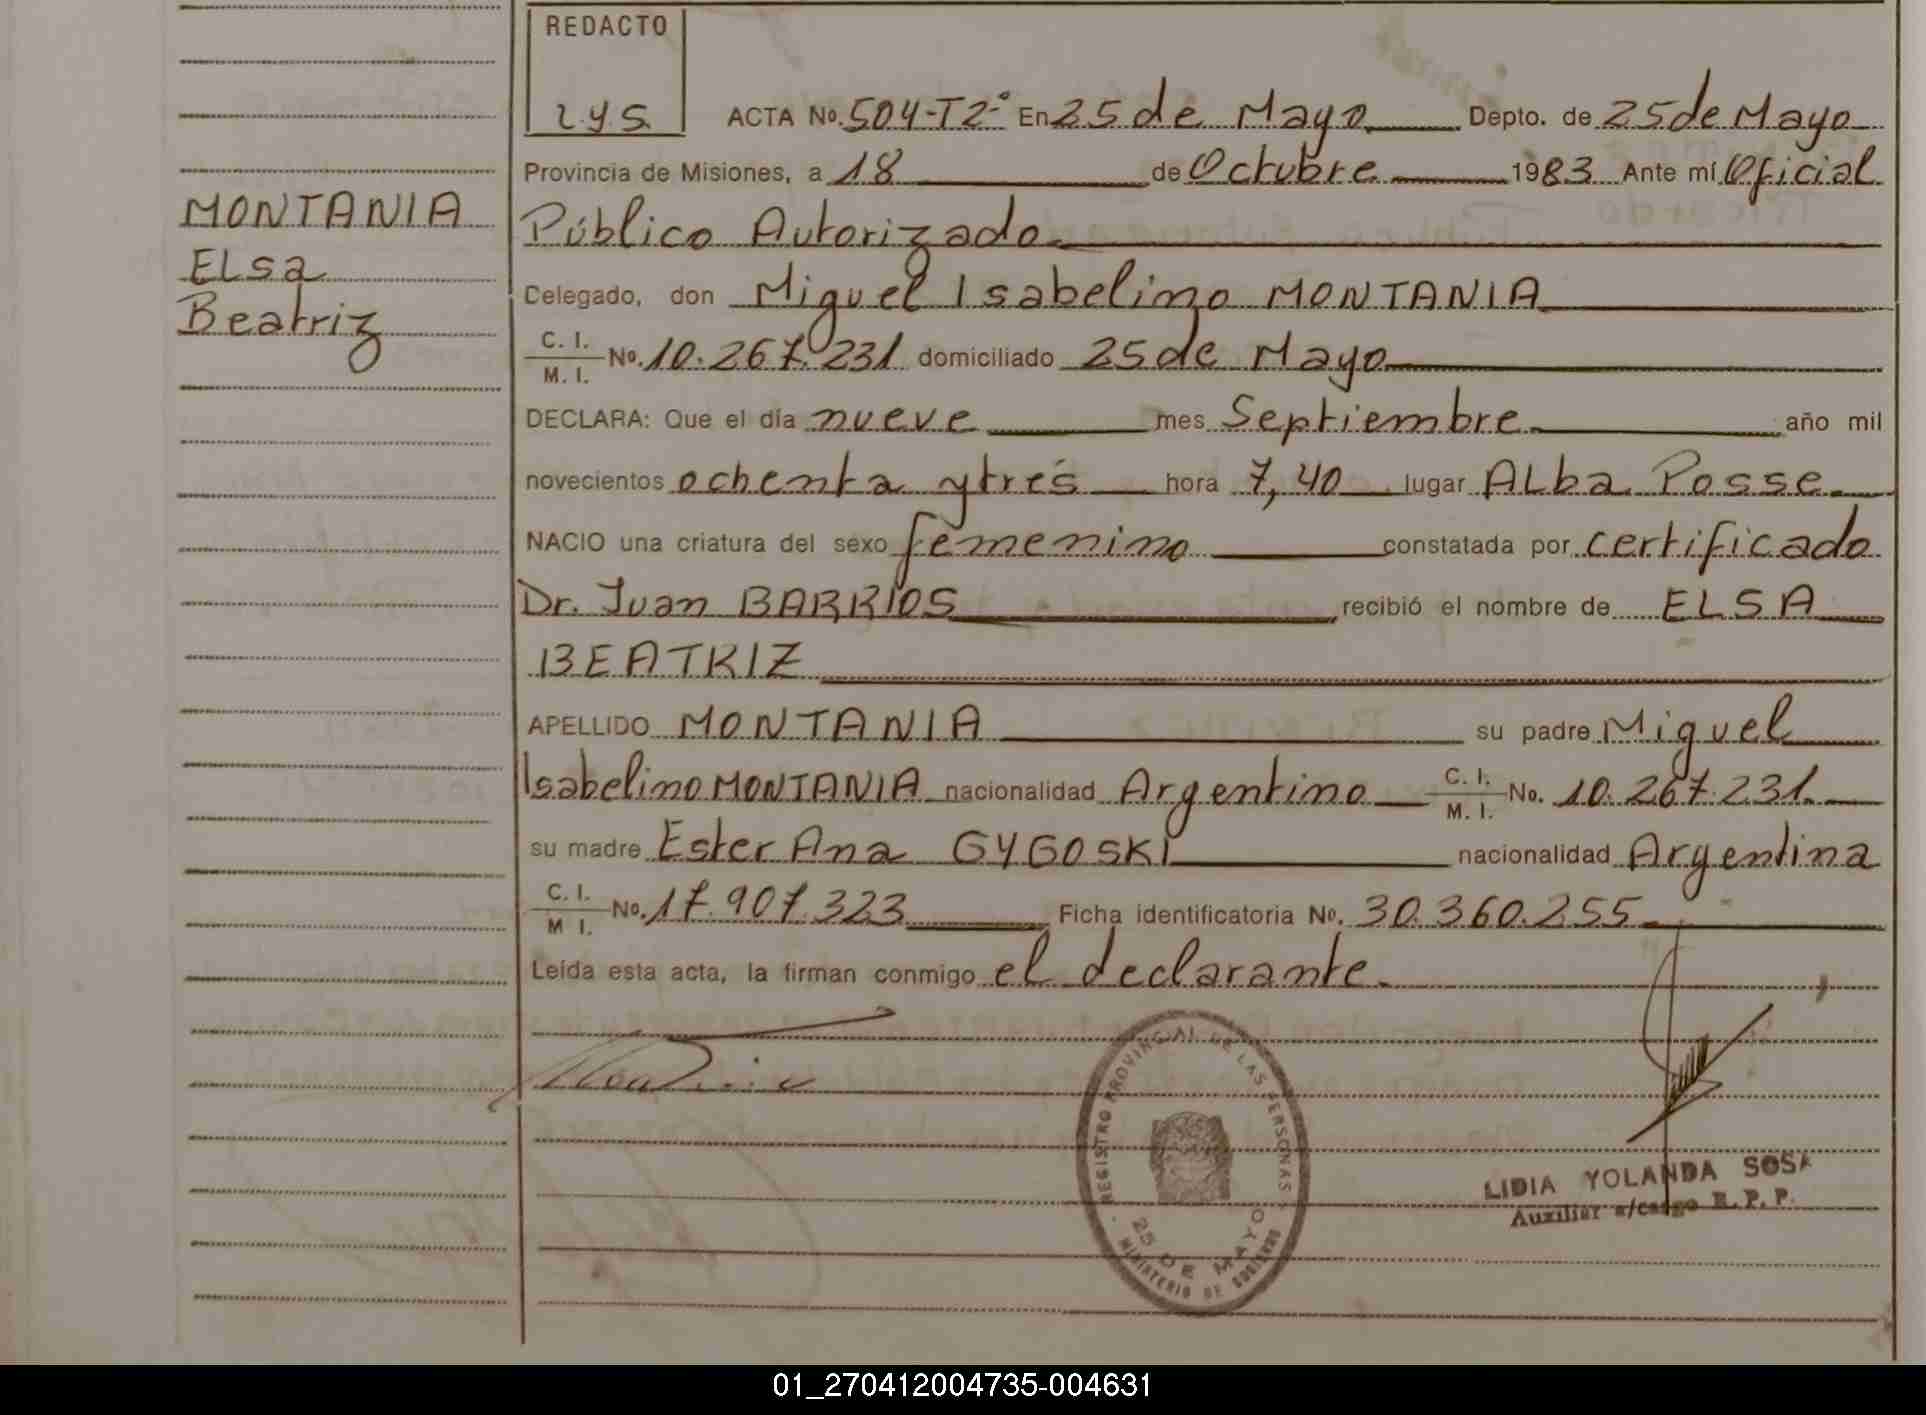 REDACTO
L.y.S.
ACTA No. 504-T2º En 25 de Mayo Depto. de 25 de Mayo
Provincia de Misiones, a 18 de Octubre 1983 Ante mí Oficial
Público Autorizado
Delegado, don Miguel Isabelino MONTANIA
C. I.
M. I. No. 10.267.231 domiciliado 25 de Mayo
DECLARA: Que el día nueve mes Septiembre año mil
novecientos ochenta y tres hora 7,40 lugar ALba Posse
NACIO una criatura del sexo femenino constatada por certificado
Dr. Juan BARRIOS recibió el nombre de ELSA
BEATRIZ
APELLIDO MONTANIA su padre Miguel
Isabelino MONTANIA nacionalidad Argentino C. I. M. I. No. 10.267.231.
su madre Ester Ana GYGOSKI nacionalidad Argentina
C. I.
M I. No. 17.907.323 Ficha identificatoria No. 30.360.255
Leída esta acta, la firman conmigo el declarante.
MONTANIA
ELsa
Beatriz
REGISTRO PROVINCIAL DE LAS PERSONAS
25 DE MAYO
MINISTERIO DE GOBIERNO
LIDIA YOLANDA SOSA
Auxiliar a/cargo R. P. P.
01_270412004735-004631